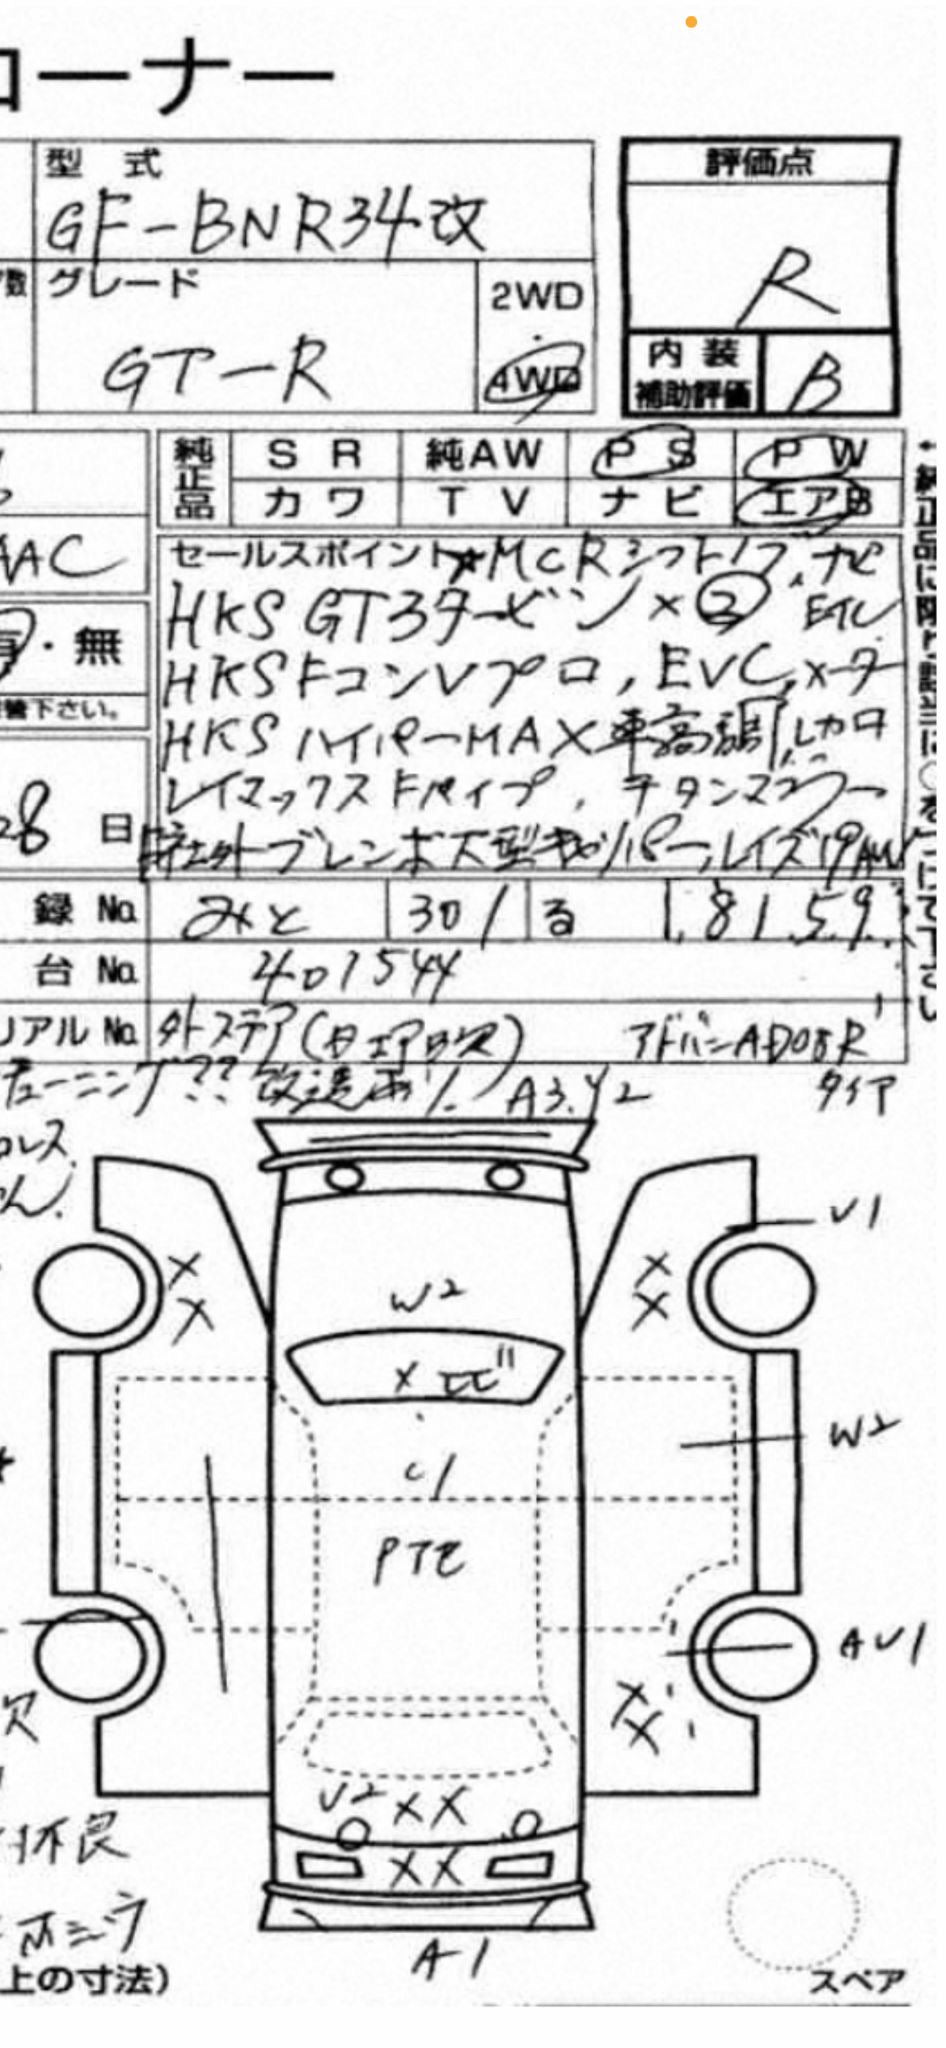 コーナー
型 式
評価点
GF-BNR34改
R
数 グレード
2WD
GT-R
4WD
内 装
補助評価
B
純正品
S R 純AW P S P W
カワ T V ナビ エアB
AAC
セールスポイント★MCRシフトノブ、ナビ
HKS GT3タービン×② ETC
有・無
HKSFコンVプロ, EVC,メーター
替下さい。
HKS ハイパーMAX車高調,レカロ
レイマックスFパイプ, チタンマフラー
28 日
ブレンボ大型キャリパー,レイズ19AW
←純正品に限り該当に○をつけて下さい
録 No. みと 301 る 8159
台 No. 401544
リアル No. 外ステア(日エアB欠) アドバンAD08R
タイヤ
チューニング?? 改造あり A3.Y2
ロレス
ん.
U1
X
X
X
X
W2
X ヒビ
C1
W2
PTセ
AU1
欠
XX
U2 XX
不良
XX
ホジウ
A1
上の寸法)
スペア